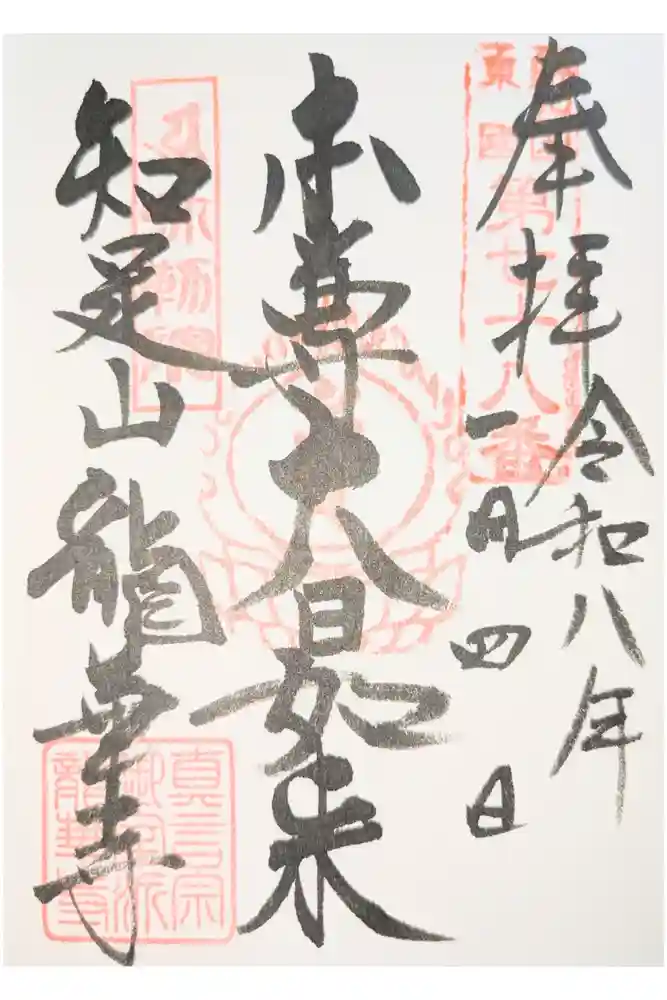 奉拝
令和八年
一月四日
第廿八番
本尊大日如来
知足山龍華寺
真言宗
御室派
龍華寺